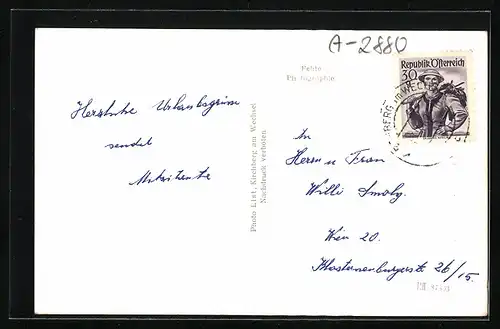 A-2880
Echte
Photographie
Republik Österreich
30 g
KIRCHBERG AM WECHSEL
Herzliche Urlaubsgrüsse
sendet
Photo List, Kirchberg am Wechsel
Nachdruck verboten
An
Herrn u Frau
Willi
Wien 20.
Klosterneuburgerstr 26/15.